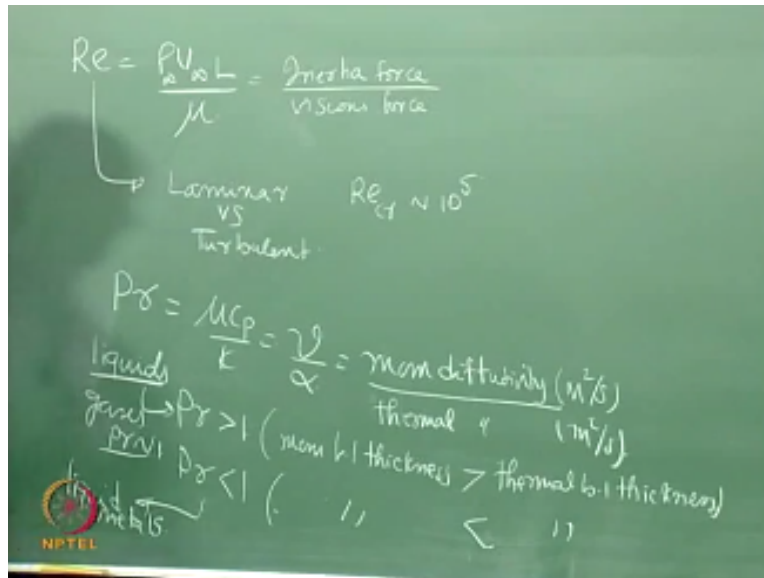 Re = ρ∞U∞L / μ = Inertia force / viscous force
Laminar
vs
Turbulent
Re_cr ~ 10⁵
Pr = μCp / k = ν / α = mom diffusivity (m²/s) / thermal " (m²/s)
liquids → Pr > 1 (mom b.l thickness > thermal b.l thickness)
gases
Pr ~ 1
Pr < 1 ( " < " )
liquid metals
NPTEL